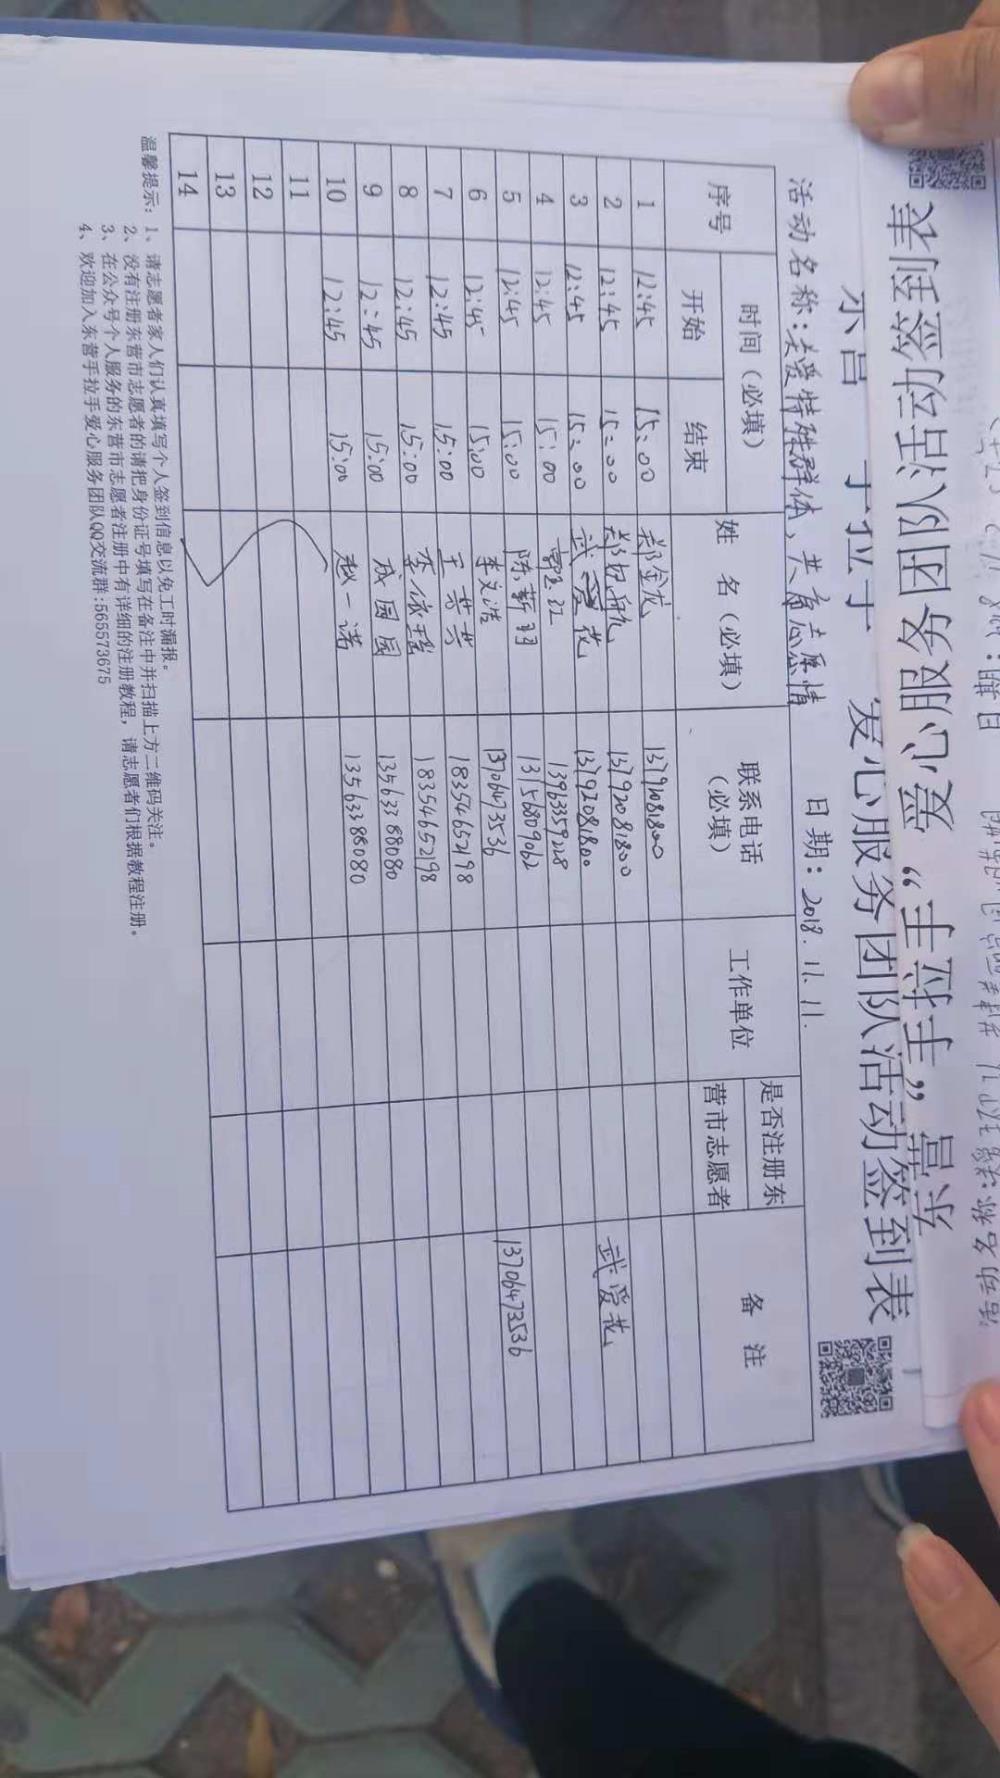 东营“手拉手”爱心服务团队活动签到表
活动名称:关爱特殊群体,共享志愿情 日期:2018.11.11.
序号 时间(必填) 姓 名(必填) 联系电话(必填) 工作单位 是否注册东营市志愿者 备 注
开始 结束
1 12:45 15:00 郑金龙
2 12:45 15:00 13792081800
3 12:45 15:00 武爱花 13792081800 武爱花
4 12:45 15:00 13963359208
5 12:45 15:00 陈薪羽 13156809062
6 12:45 15:00 李文浩 13706473536 13706473536
7 12:45 15:00 王英英 18354652198
8 12:45 15:00 李依程 18354652198
9 12:45 15:00 成园园 13563388080
10 12:45 15:00 赵一诺 13563388080
11
12
13
14
温馨提示:1、请志愿者家人们认真填写个人签到信息以免工时漏报。
2、没有注册东营市志愿者的请把身份证号填写在备注中并扫描上方二维码关注。
3、在公众号个人服务的东营市志愿者注册中有详细的注册教程,请志愿者们根据教程注册。
4、欢迎加入东营手拉手爱心服务团队QQ交流群:565573675